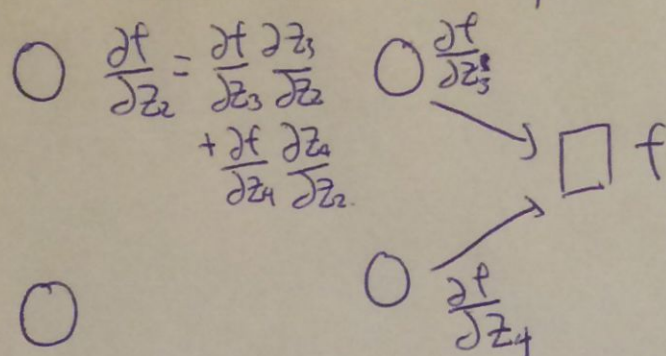 ∂f/∂z₂ = ∂f/∂z₃ ∂z₃/∂z₂
+ ∂f/∂z₄ ∂z₄/∂z₂
∂f/∂z₃
f
∂f/∂z₄